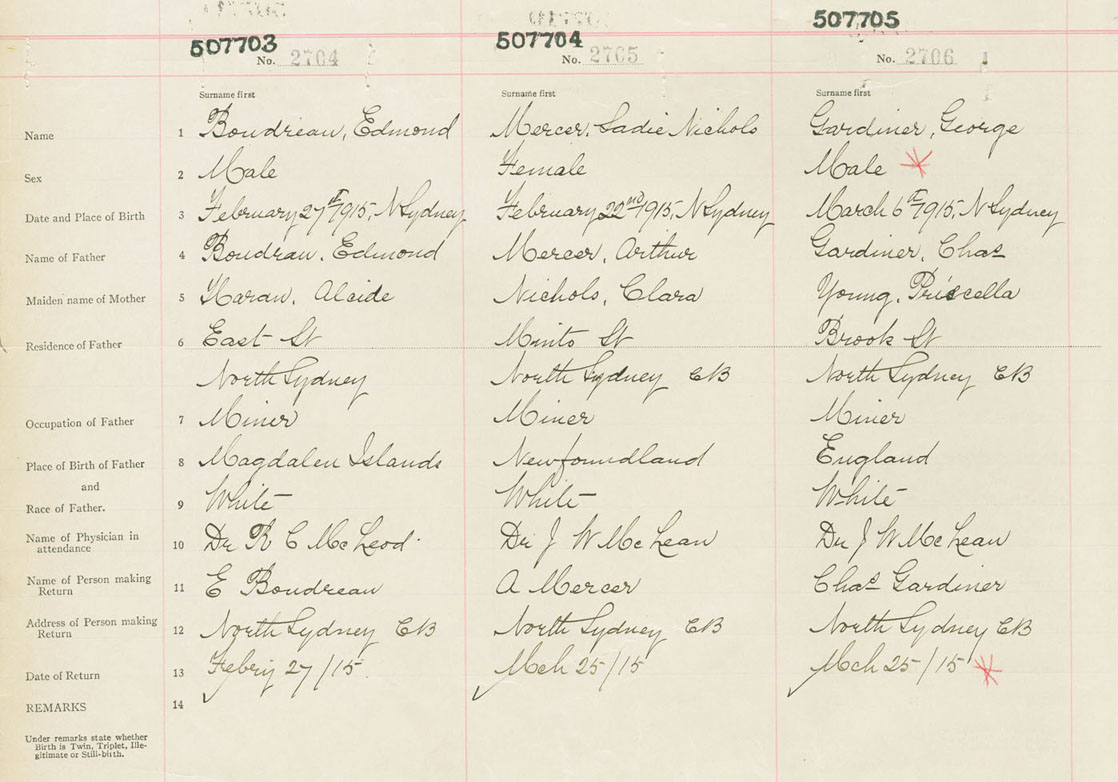 507703 507704 507705
No. 2704 No. 2705 No. 2706
Surname first Surname first Surname first
Name 1 Boudreau, Edmond Mercer, Sadie Nichols Gardiner, George
Sex 2 Male Female Male
Date and Place of Birth 3 February 27th 1915, N Sydney February 22nd 1915, N Sydney March 6th 1915, N Sydney
Name of Father 4 Boudrau, Edmond Mercer, Arthur Gardiner, Chas
Maiden name of Mother 5 Alcide Nichols, Clara Young, Priscella
Residence of Father 6 East St Minto St Brook St
North Sydney North Sydney CB North Sydney CB
Occupation of Father 7 Miner Miner Miner
Place of Birth of Father 8 Magdalen Islands Newfoundland England
and
Race of Father. 9 White White White
Name of Physician in
attendance 10 Dr R C McLeod Dr J W McLean Dr J W McLean
Name of Person making
Return 11 E Boudreau A Mercer Chas Gardiner
Address of Person making
Return 12 North Sydney CB North Sydney CB North Sydney CB
Date of Return 13 Febry 27/15 Mch 25/15 Mch 25/15
REMARKS 14
Under remarks state whether
Birth is Twin, Triplet, Ille-
gitimate or Still-birth.